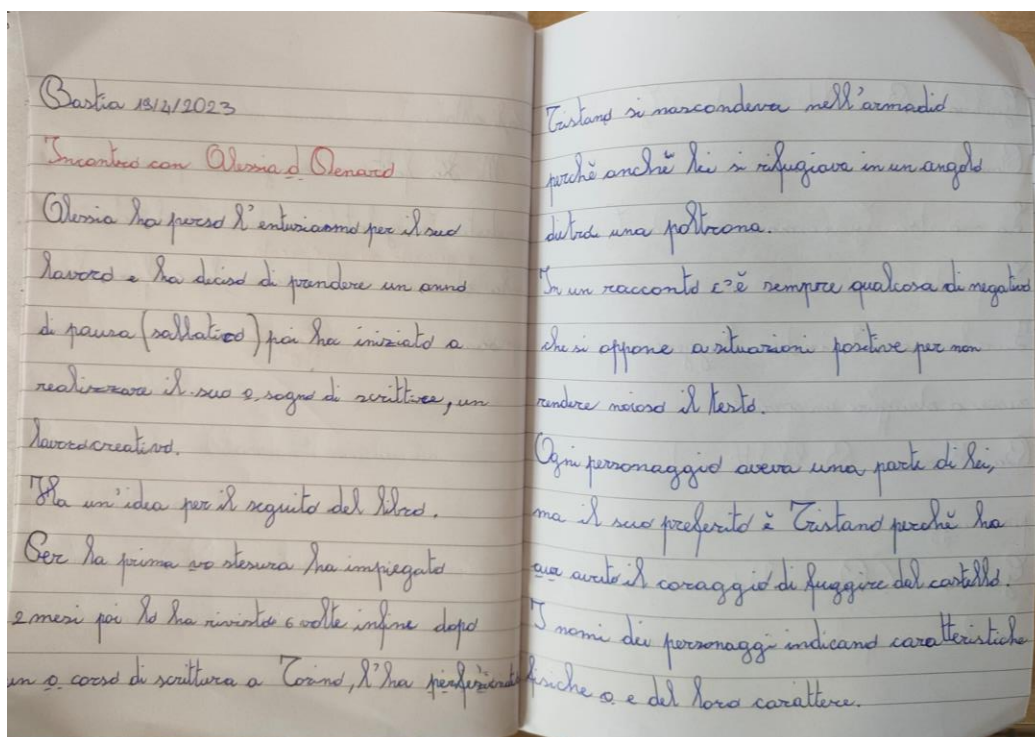 Bastia 19/4/2023
Incontro con Alessia d Renard
Alessia ha perso l'entusiasmo per il suo
lavoro e ha deciso di prendere un anno
di pausa (sabbatico) poi ha iniziato a
realizzare il suo sogno di scrittrice, un
lavoro creativo.
Ha un'idea per il seguito del libro.
Per la prima stesura ha impiegato
2 mesi poi lo ha rivisto 6 volte infine dopo
un corso di scrittura a Torino, l'ha perfezionato
Tristano si nascondeva nell'armadio
perchè anchè lei si rifugiava in un angolo
dietro una poltrona.
In un racconto c'è sempre qualcosa di negativo
che si oppone a situazioni positive per non
rendere noioso il testo.
Ogni personaggio aveva una parte di lei,
ma il suo preferito è Tristano perchè ha
avuto il coraggio di fuggire dal castello.
I nomi dei personaggi indicano caratteristiche
fisiche e del loro carattere.